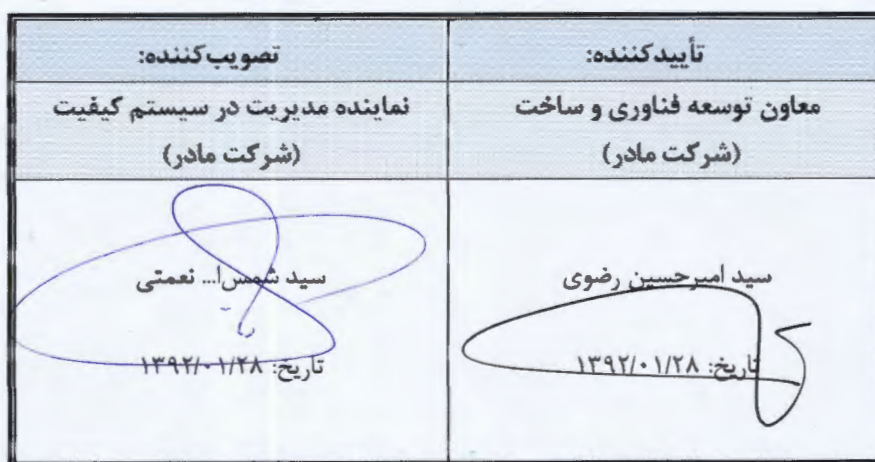 تأییدکننده:
تصویب‌کننده:
معاون توسعه فناوری و ساخت
(شرکت مادر)
نماینده مدیریت در سیستم کیفیت
(شرکت مادر)
سید امیرحسین رضوی
تاریخ: ۱۳۹۲/۰۱/۲۸
سید شمس‌ا... نعمتی
تاریخ: ۱۳۹۲/۰۱/۲۸